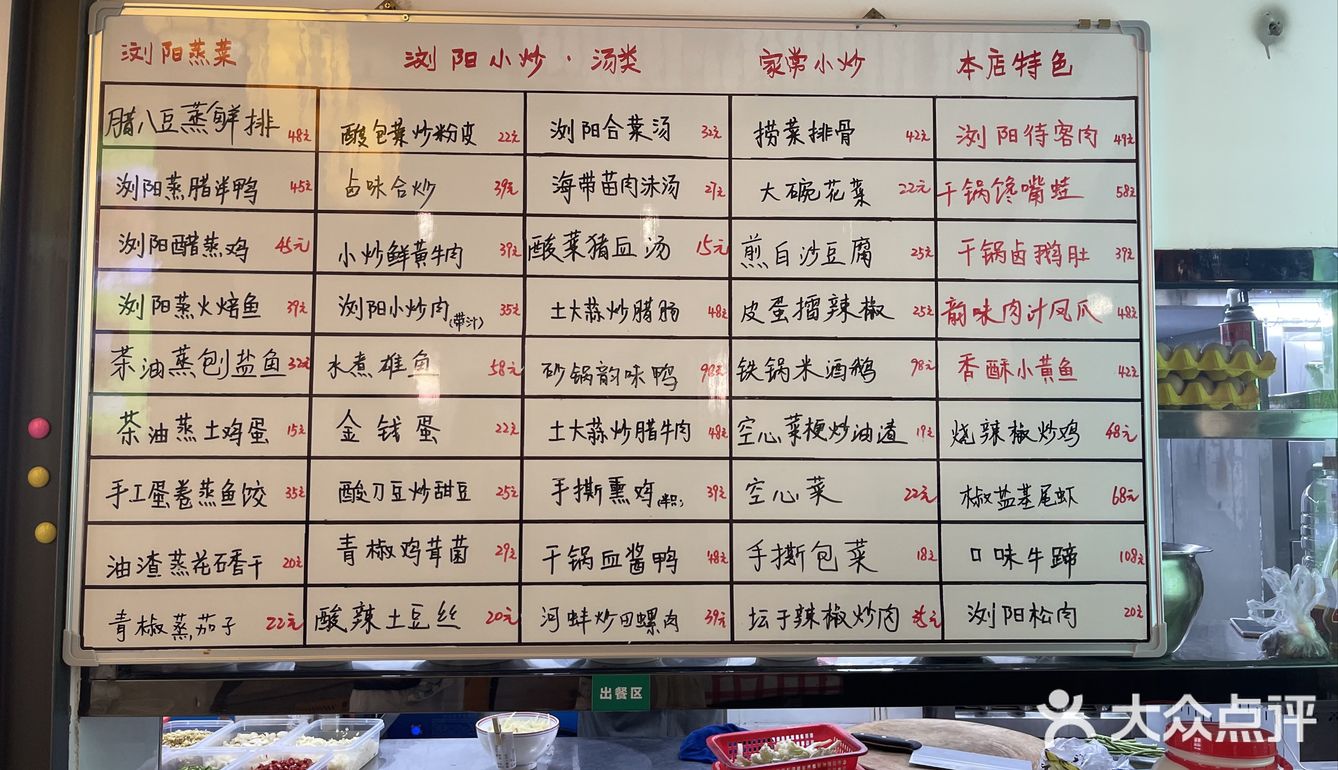 浏阳蒸菜 浏阳小炒·汤类 家常小炒 本店特色
腊八豆蒸鲜排 48元 酸包菜炒粉皮 22元 浏阳合菜汤 32元 捞菜排骨 42元 浏阳待客肉 49元
浏阳蒸腊洋鸭 45元 卤味合炒 39元 海带苗肉沫汤 27元 大碗花菜 22元 干锅馋嘴蛙 58元
浏阳醋蒸鸡 45元 小炒鲜黄牛肉 39元 酸菜猪血汤 15元 煎白沙豆腐 25元 干锅卤鹅肚 39元
浏阳蒸火焙鱼 39元 浏阳小炒肉(带汁) 35元 土大蒜炒腊肠 48元 皮蛋擂辣椒 25元 韵味肉汁凤爪 48元
茶油蒸刨盐鱼 32元 水煮雄鱼 58元 砂锅韵味鸭 98元 铁锅米酒鹅 98元 香酥小黄鱼 42元
茶油蒸土鸡蛋 15元 金钱蛋 22元 土大蒜炒腊牛肉 48元 空心菜梗炒油渣 19元 烧辣椒炒鸡 48元
手工蛋卷蒸鱼饺 35元 酸刀豆炒甜豆 25元 手撕熏鸡 39元 空心菜 22元 椒盐基尾虾 68元
油渣蒸花石香干 20元 青椒鸡茸菌 29元 干锅血酱鸭 48元 手撕包菜 18元 口味牛蹄 108元
青椒蒸茄子 22元 酸辣土豆丝 20元 河蚌炒田螺肉 39元 坛于辣椒炒肉 浏阳松肉 20元
出餐区
大众点评